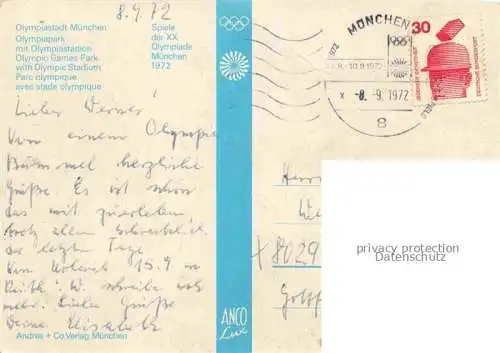 8.9.72
Olympiastadt München
Olympiapark
mit Olympiastadion
Olympic Games Park
with Olympic Stadium
Parc olympique
avec stade olympique
Spiele
der XX.
Olympiade
München
1972
Lieber Werner!
Von einem Olympia
Bummel herzliche
Grüße. Es ist schon
das mit zuerleben,
trotz allem Schrecklich
der letzten Tage.
15.9.
W. schreibe ich
mehr. Liebe Grüße
Deine Elisabeth
Andres + Co Verlag München
ANCO
MÜNCHEN
1972
8.-10.9.1972
x -8. -9. 1972
8
30
DEUTSCHE BUNDESPOST
Herrn
8029
Golf
privacy protection
Datenschutz